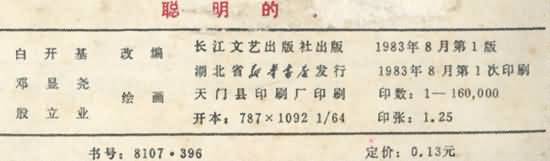 聪明的
白开基 改编
邓显尧
殷立业 绘画
长江文艺出版社出版
湖北省新华书店发行
天门县印刷厂印刷
开本：787×1092 1/64
1983年8月第1版
1983年8月第1次印刷
印数：1—160,000
印张：1.25
书号：8107·396 定价：0.13元